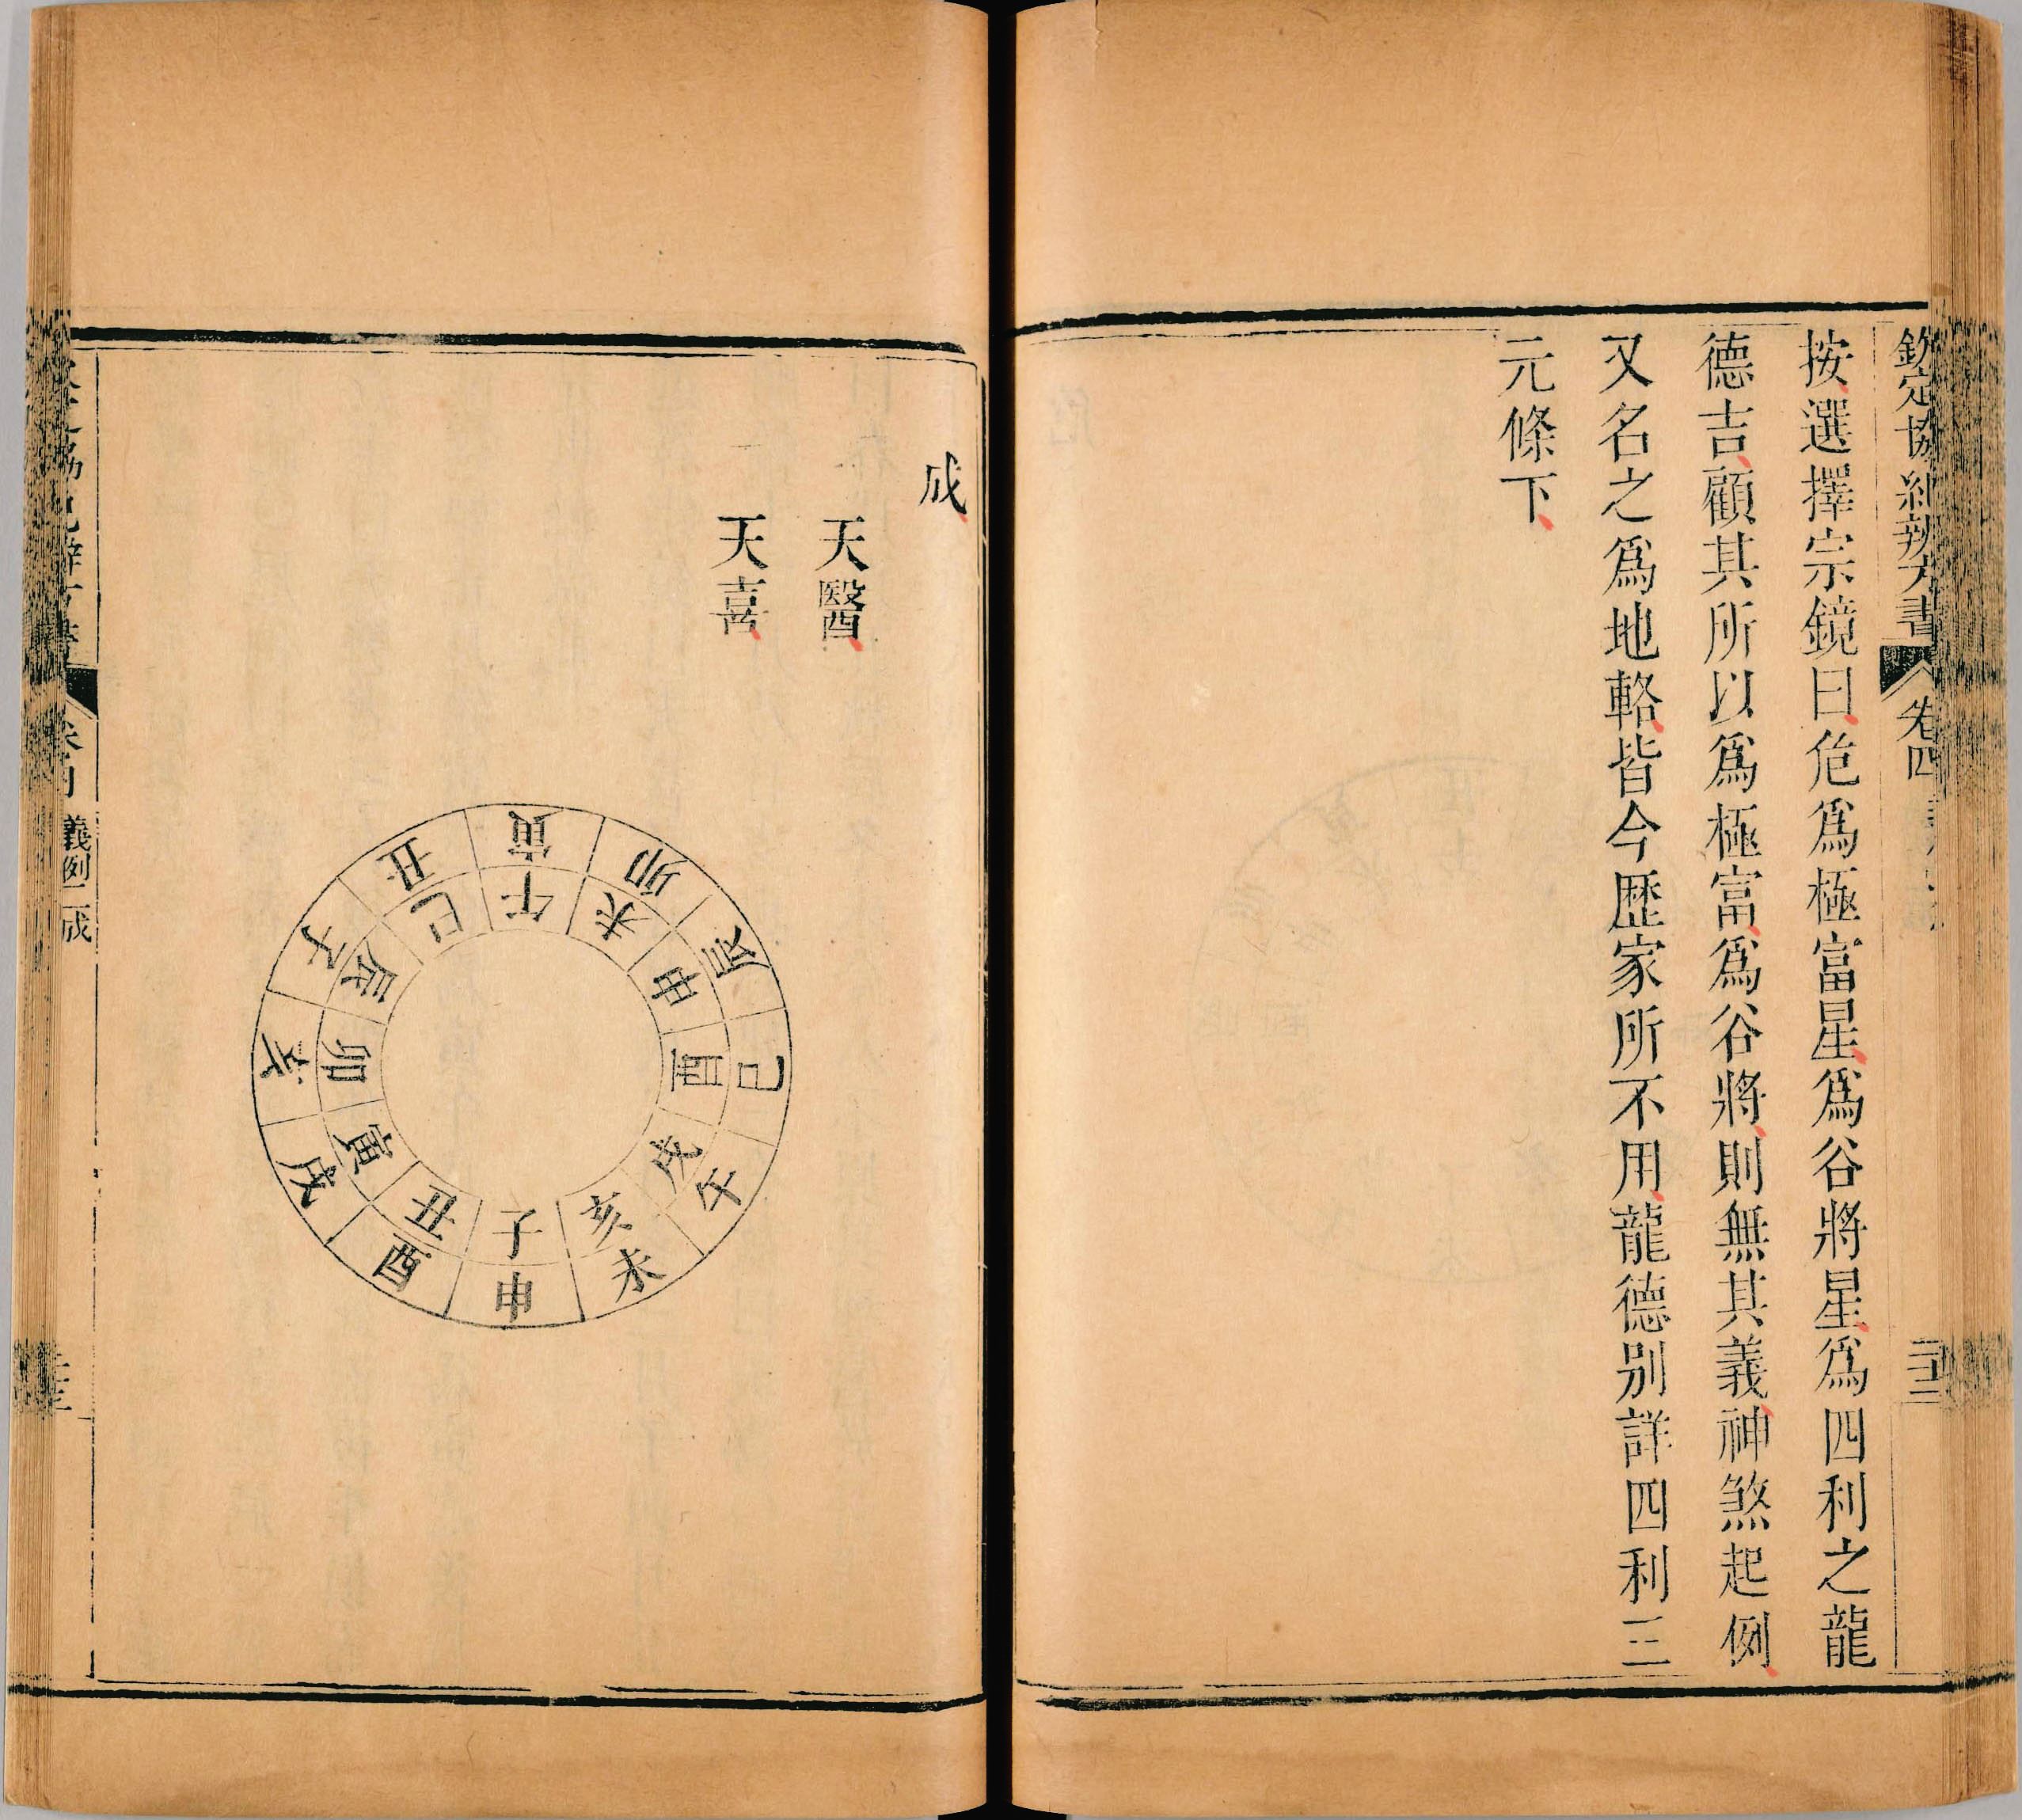 欽定協紀辨方書 卷四
按選擇宗鏡曰危爲極富星爲谷將星爲四利之龍
德吉顧其所以爲極富爲谷將則無其義神煞起例
又名之爲地輅皆今歴家所不用龍德別詳四利三
元條下
成
天醫
天喜
寅 卯 辰 巳 午 未 申 酉 戌 亥 子 丑
午 未 申 酉 戌 亥 子 丑 寅 卯 辰 巳
義例二 成